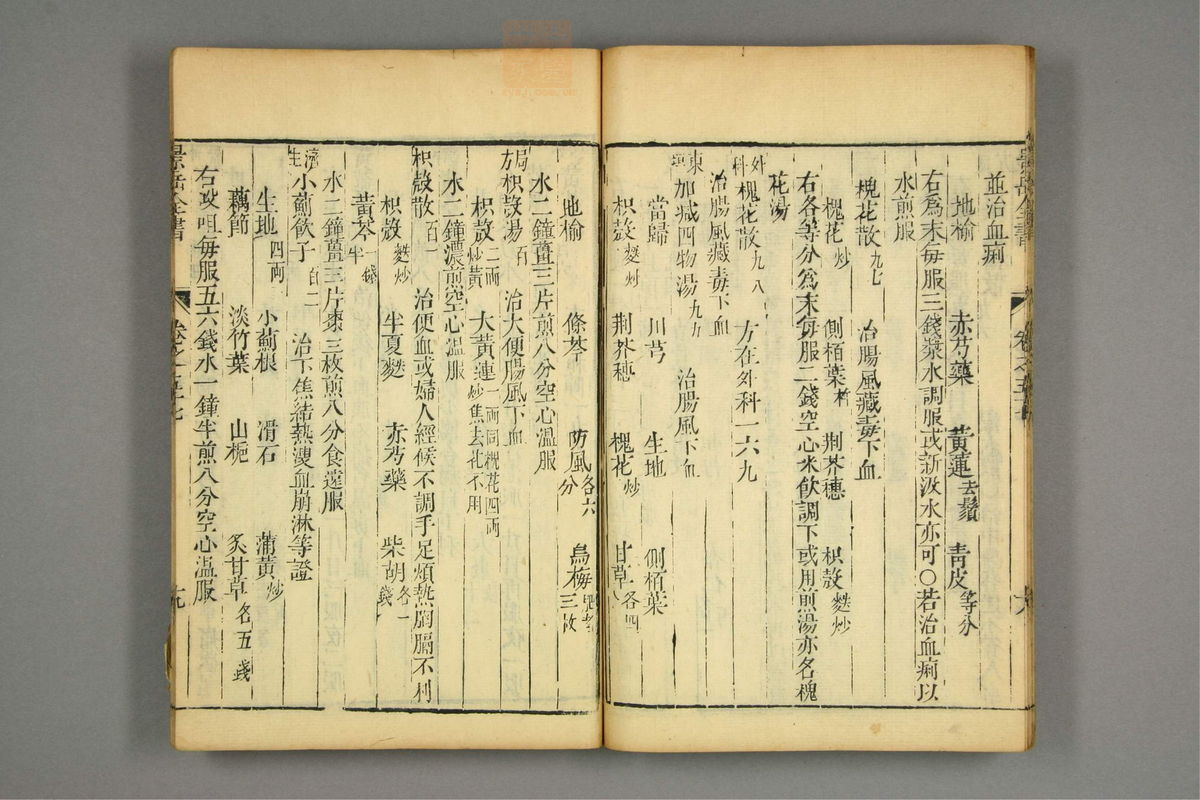 並治血痢
地榆 赤芍藥 黃蓮去鬚 青皮等分
右為末每服三錢漿水調服或新汲水亦可○若治血痢以
水煎服
槐花散九七 治腸風藏毒下血
槐花炒 側栢葉 荆芥穗 枳殼麩炒
右各等分為末每服二錢空心米飲調下或用煎湯亦名槐
花湯
外科槐花散九八 方在外科一六九
治腸風藏毒下血
東垣加減四物湯九九 治腸風下血
當歸 川芎 生地 側栢葉
枳殼麩炒 荆芥穗 槐花炒 甘草各四
地榆 條芩 防風各六分 烏梅肥者三枚
水二鐘薑三片煎八分空心溫服
局方枳殼湯百 治大便腸風下血
枳殼二兩炒黃 大黃蓮一兩同槐花四兩炒焦去花不用
水二鐘濃煎空心溫服
枳殼散百一 治便血或婦人經候不調手足煩熱胸膈不利
枳殼麩炒 半夏麯 赤芍藥 柴胡各一錢
黃芩一錢半
水二鐘薑三片棗三枚煎八分食遠服
濟生小薊飲子百二 治下焦結熱溲血崩淋等證
生地四兩 小薊根 滑石 蒲黃炒
藕節 淡竹葉 山梔 炙甘草各五錢
右㕮咀每服五六錢水一鐘半煎八分空心溫服
景岳全書 卷之五十七 九